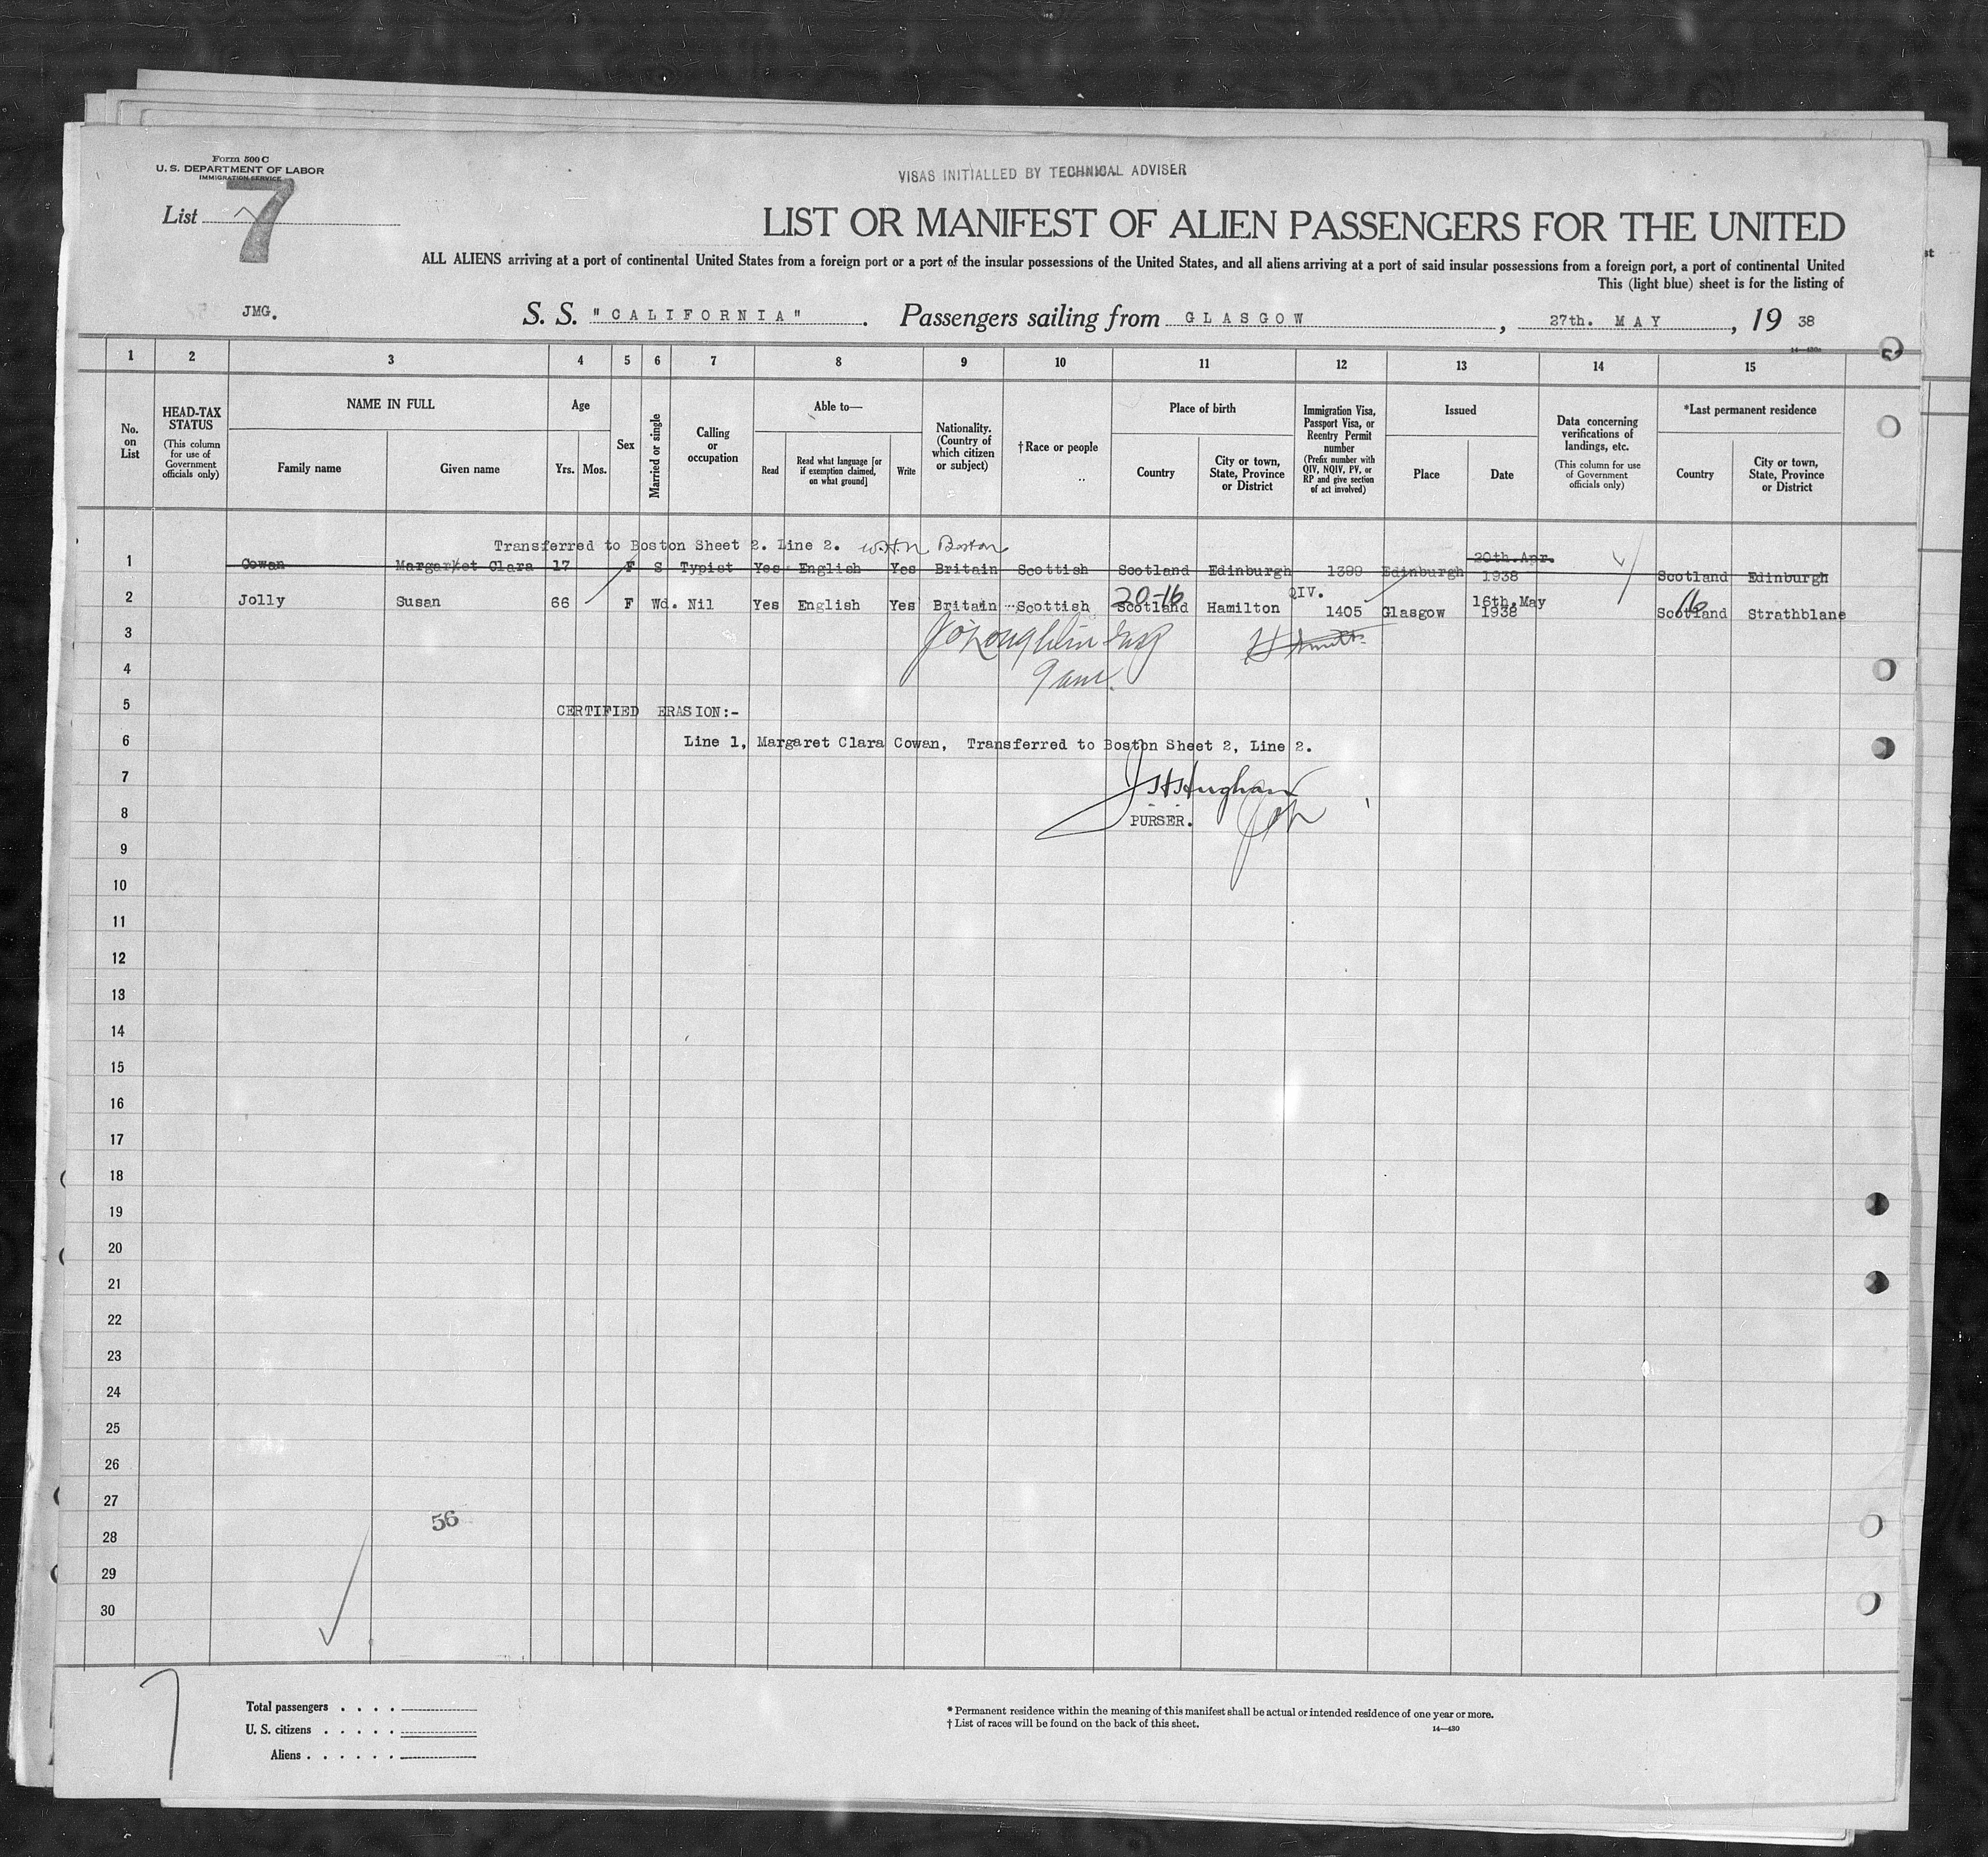 Form 500 C
U. S. DEPARTMENT OF LABOR
IMMIGRATION SERVICE
VISAS INITIALLED BY TECHNICAL ADVISER
List 7
LIST OR MANIFEST OF ALIEN PASSENGERS FOR THE UNITED
ALL ALIENS arriving at a port of continental United States from a foreign port or a port of the insular possessions of the United States, and all aliens arriving at a port of said insular possessions from a foreign port, a port of continental United
This (light blue) sheet is for the listing of
JMG. S. S. "CALIFORNIA". Passengers sailing from GLASGOW, 27th. MAY, 19 38
1 2 3 4 5 6 7 8 9 10 11 12 13 14 15
No. on List
HEAD-TAX STATUS (This column for use of Government officials only)
NAME IN FULL
Family name Given name
Age
Yrs. Mos.
Sex
Married or single
Calling or occupation
Able to—
Read
Read what language [or if exemption claimed, on what ground]
Write
Nationality. (Country of which citizen or subject)
† Race or people
Place of birth
Country
City or town, State, Province or District
Immigration Visa, Passport Visa, or Reentry Permit number (Prefix number with QIV, NQIV, PV, or RP and give section of act involved)
Issued
Place Date
Data concerning verifications of landings, etc. (This column for use of Government officials only)
*Last permanent residence
Country
City or town, State, Province or District
Transferred to Boston Sheet 2. Line 2. Boston
1 Cowan Margaret Clara 17 F S Typist Yes English Yes Britain Scottish Scotland Edinburgh 1399 Edinburgh 20th.Apr. 1938 Scotland Edinburgh
2 Jolly Susan 66 F Wd. Nil Yes English Yes Britain Scottish Scotland Hamilton QIV. 1405 Glasgow 16th.May 1938 Scotland Strathblane
20-16
16
3 J O'Loughlin Insp
4
5 CERTIFIED ERASION:-
6 Line 1, Margaret Clara Cowan, Transferred to Boston Sheet 2, Line 2.
7
8 PURSER.
9
10
11
12
13
14
15
16
17
18
19
20
21
22
23
24
25
26
27
56
28
29
30
Total passengers . . . .
U. S. citizens . . . . .
Aliens . . . . . .
* Permanent residence within the meaning of this manifest shall be actual or intended residence of one year or more.
† List of races will be found on the back of this sheet.
14—430